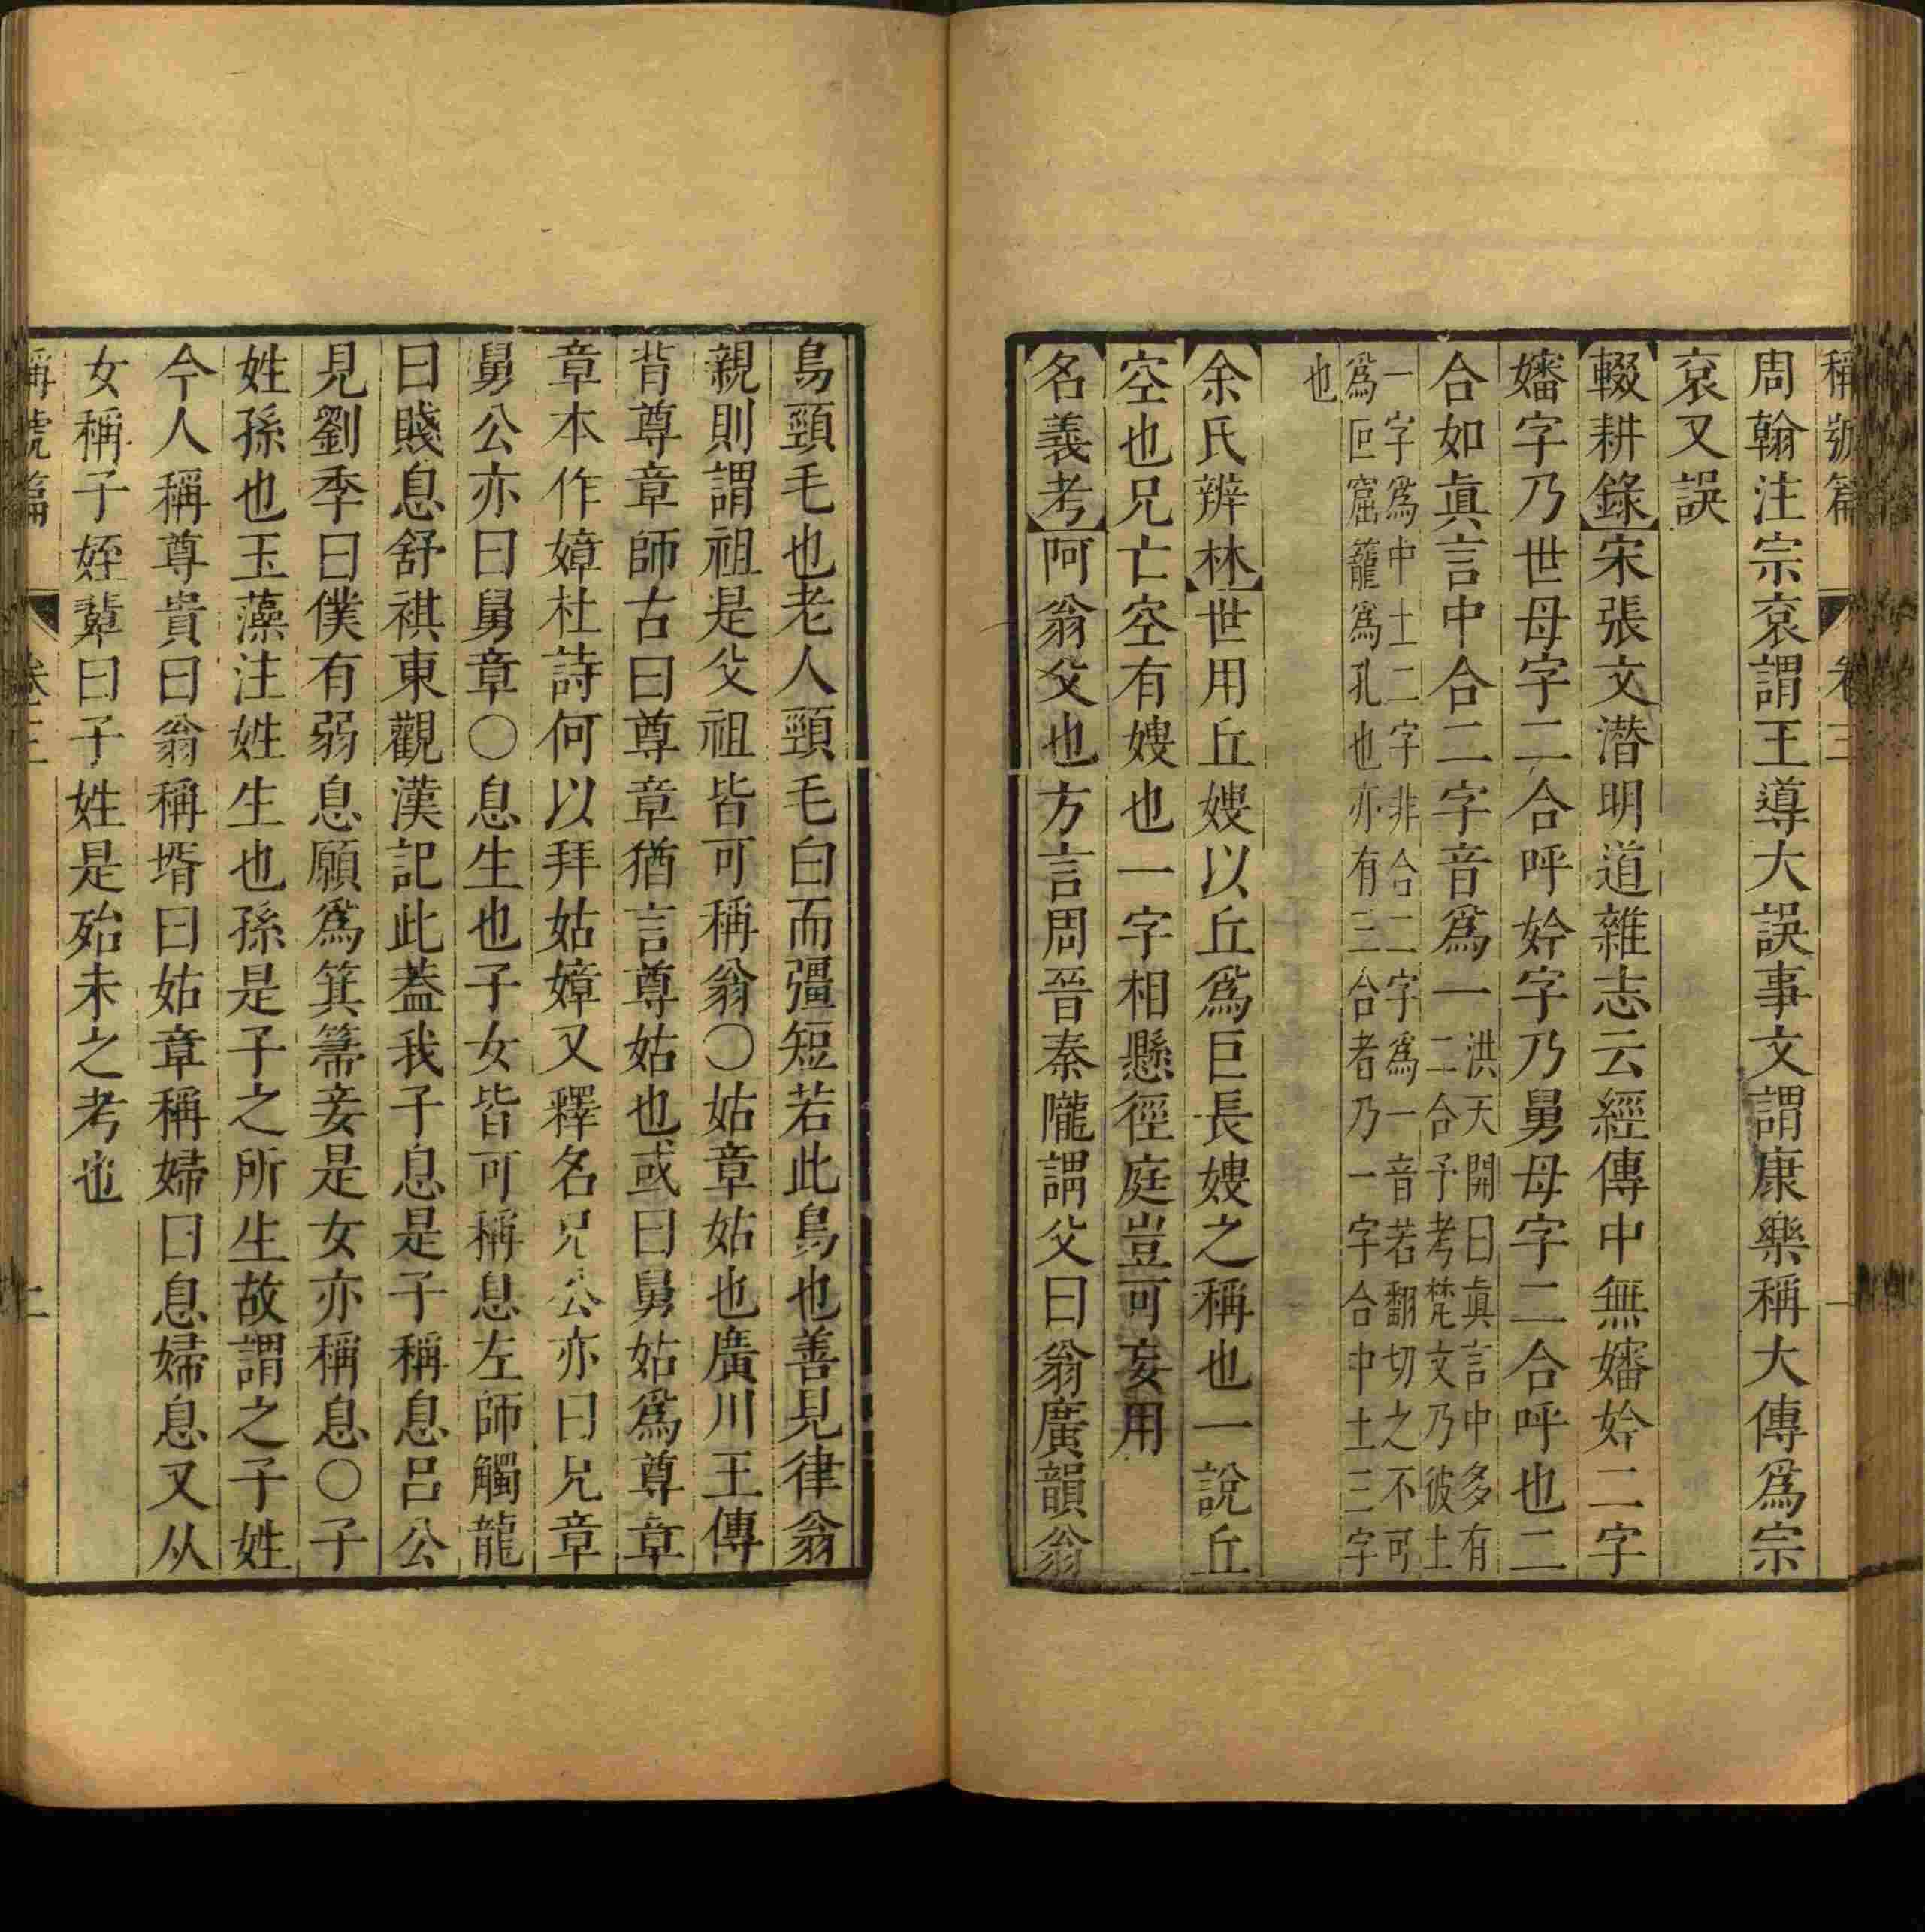 稱號篇 卷三 一
周翰注宗袞謂王導大誤事文謂康樂稱大傳爲宗
袞又誤
輟耕錄宋張文潛明道雜志云經傳中無嬸妗二字
嬸字乃世母字二合呼妗字乃舅母字二合呼也二
合如眞言中合二字音爲一洪天開曰眞言中多有
二合予考梵文乃彼土
一字爲中土二字非合二字爲一音若翻切之不可
爲叵窟籠爲孔也亦有三合者乃一字合中土三字
也
余氏辨林世用丘嫂以丘爲巨長嫂之稱也一說丘
空也兄亡空有嫂也一字相懸徑庭豈可妄用
名義考阿翁父也方言周晉秦隴謂父曰翁廣韻翁
鳥頸毛也老人頸毛白而彊短若此鳥也善見律翁
親則謂祖是父祖皆可稱翁〇姑章姑也廣川王傳
背尊章師古曰尊章猶言尊姑也或曰舅姑爲尊章
章本作嫜杜詩何以拜姑嫜又釋名兄公亦曰兄章
舅公亦曰舅章〇息生也子女皆可稱息左師觸龍
曰賤息舒祺東觀漢記此葢我子息是子稱息呂公
見劉季曰僕有弱息願爲箕箒妾是女亦稱息〇子
姓孫也玉藻注姓生也孫是子之所生故謂之子姓
今人稱尊貴曰翁稱壻曰姑章稱婦曰息婦息又从
女稱子姪輩曰子姓是殆未之考也
稱號篇 卷三 二